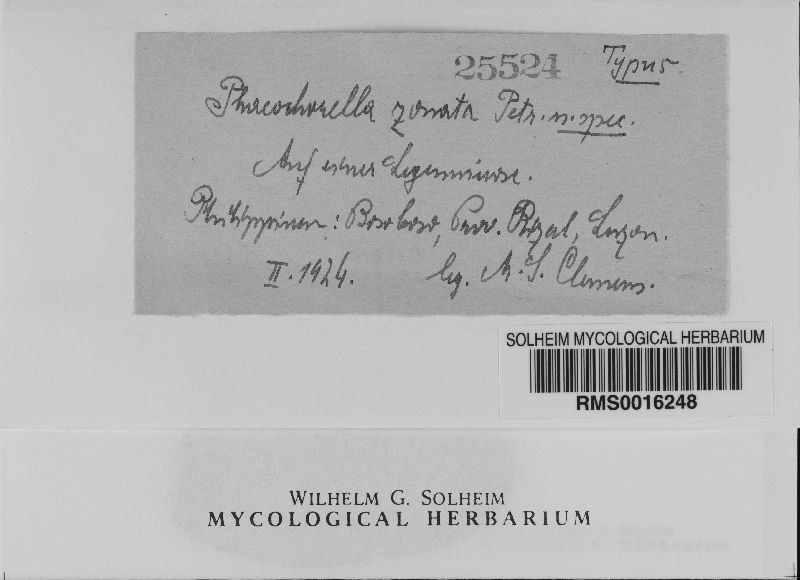 25524 Typus.
Phaeochorella zonata Petr. n. spec.
Auf einer Leguminose.
Philippinen: Bosoboso, Prov. Rizal, Luzon.
II. 1924. leg. M. S. Clemens.
SOLHEIM MYCOLOGICAL HERBARIUM
RMS0016248
WILHELM G. SOLHEIM
MYCOLOGICAL HERBARIUM